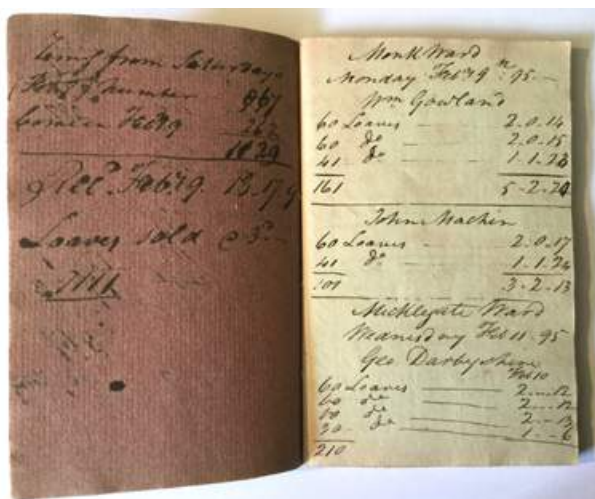 from Saturday
Number 867
Feb 19 262
1129
Recd. Feb 19 13.17.9
Loaves Sold
1111
Monk Ward
Monday Feb 9th 95
Wm Gowland
60 Loaves 2.0.14
60 do 2.0.15
41 do 1.1.23
161 5-2-24
John Machin
60 Loaves 2.0.17
41 do 1.1.24
101 3-2-13
Micklegate Ward
Wednesday Feb 11 95
Geo Darbyshire
Feb 10
60 Loaves 2--12
60 do 2--12
60 do 2--13
30 do 1--6
210